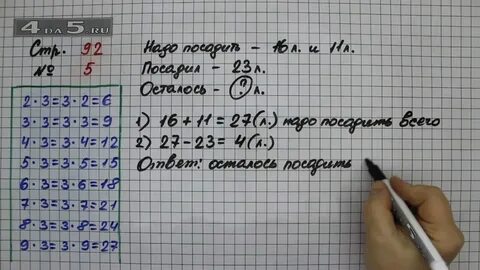 4da5.RU
Стр. 92
№ 5
2·3=3·2=6
3·3=3·3=9
4·3=3·4=12
5·3=3·5=15
6·3=3·6=18
7·3=3·7=21
8·3=3·8=24
9·3=3·9=27
Надо посадить – 16л. и 11л.
Посадил – 23л.
Осталось – ? л.
1) 16+11=27(л.) надо посадить всего
2) 27-23=4(л.)
Ответ: осталось посадить